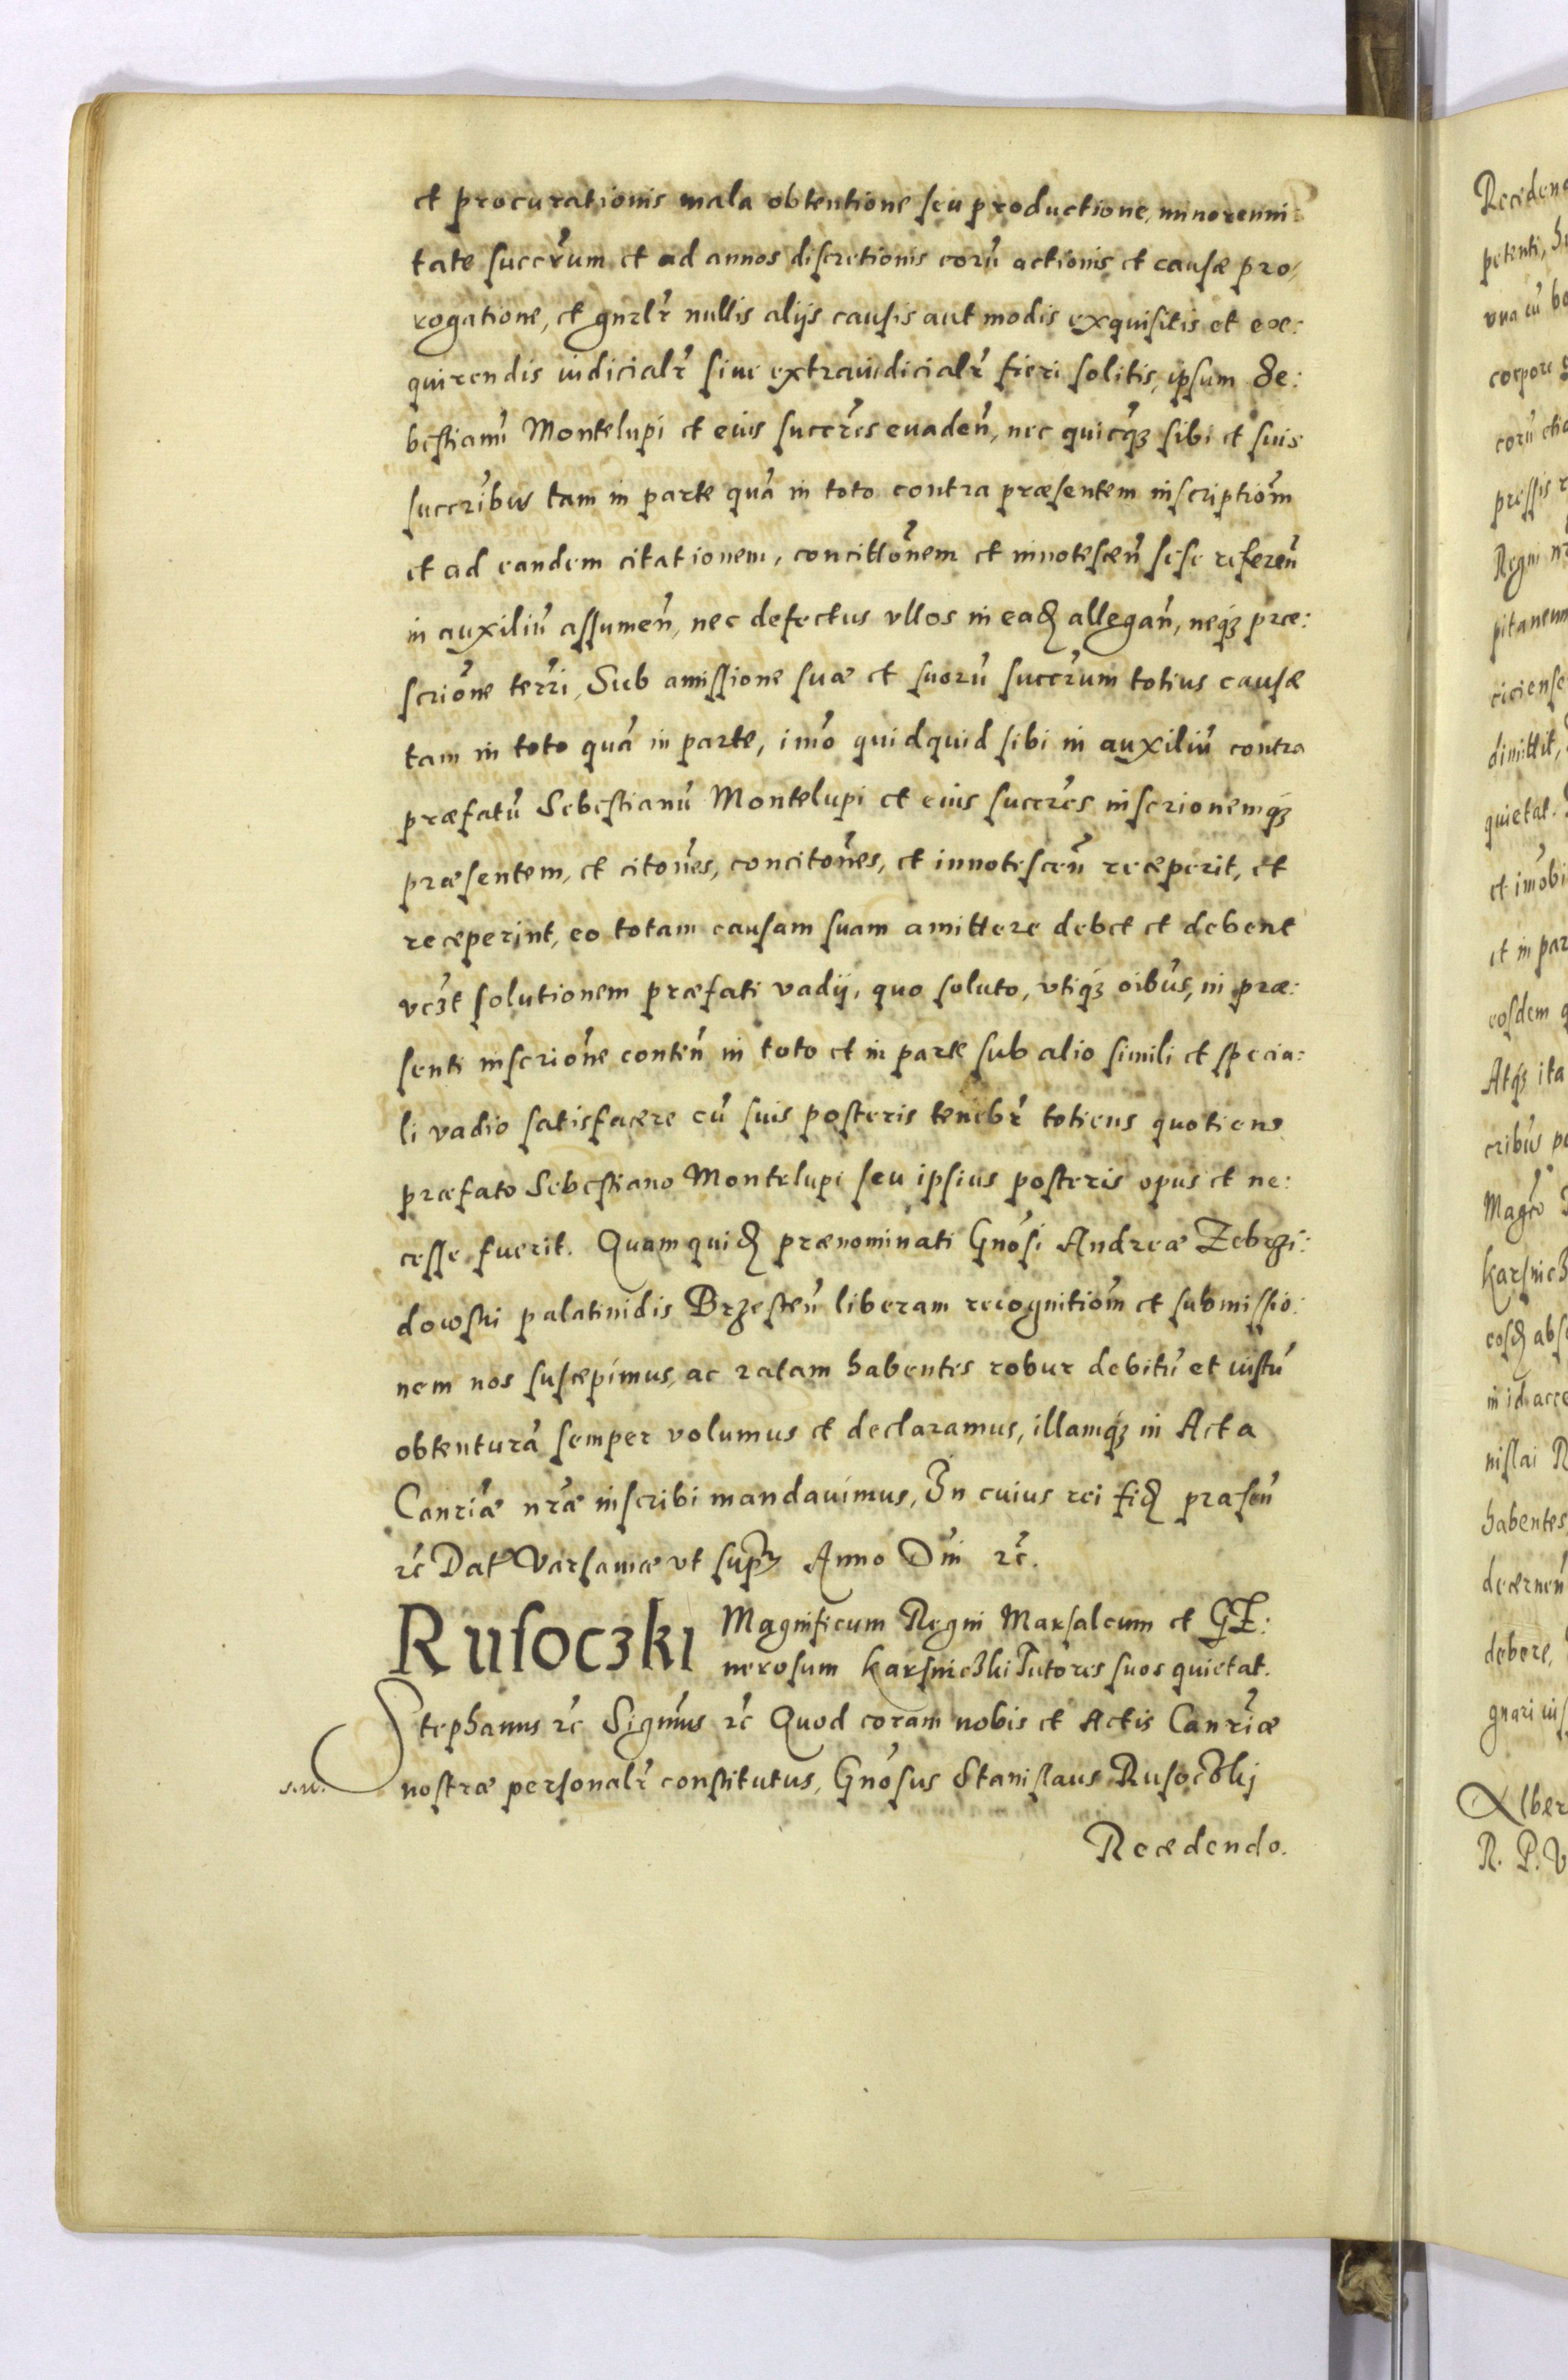 et procurationis mala obtentione seu productione, minorenni:
tate succr̃um et ad annos discretionis eorũ actionis et causæ pro/
rogatione, et gnrlr̃ nullis alijs causis aut modis exquisitis et exe:
quirendis iudicialr̃ siue extraiudicialr̃ fieri solitis, ipsum Se:
bestianũ Montelupi et eius succr̃es euadeñ, nec quicq̃ sibi et suis
succr̃ibus tam in parte quã in toto contra præsentem inscriptiõm
et ad eandem citationem, concittõnem et innotesceñ sese refereñ
in auxiliũ assumeñ, nec defectus vllos in eadẽ allegañ, neqꝫ præ:
scriõne terr̃i, Sub amissione suæ et suorũ succr̃um totius causæ
tam in toto quã in parte, imõ quidquid sibi in auxiliũ contra
præfatũ Sebestianũ Montelupi et eius succr̃es inscrionemqꝫ
præsentem, et citõnes, concitõnes, et innotesceñ receperit, et
receperint, eo totam causam suam amittere debet et debent
vcꝫt solutionem præfati vadij, quo soluto, vtiqꝫ oib̃us, in præ:
senti inscriõne conteñ in toto et in parte sub alio simili et specia:
li vadio satisfacere cũ suis posteris tenebr̃ totiens quotiens
præfato Sebestiano Montelupi seu ipsius posteris opus et ne:
cesse fuerit. Quam quidẽ prænominati Gnõsi Andreæ Zebrzi:
dowski palatinidis Brzesteñ liberam recognitiõm et submissio:
nem nos suscepimus, ac ratam habentes robur debitũ et iustũ
obtenturã semper volumus et declaramus, illamqꝫ in Acta
Canr̃iæ nr̃æ inscribi mandauimus, In cuius rei fidẽ præseñ
rc̃ Dat Varsauiæ vt supr̃ Anno Dñi rc̃.
Rusoczki
Magnificum Regni Marsalcum et GE:
nerosum Karsniczki Tutores suos quietat.
Stephanus rc̃ Signm̃us rc̃ Quod coram nobis et Actis Canr̃iæ
nostræ personalr̃ constitutus, Gnõsus Stanislaus Rusoczkj
Recedendo.
Recedend
petenti,
vna cũ
corpore
eorũ
pressis
Regni
pitaneum
ciciense
dimittit,
quietat.
et imõbi
et in par
eosdem
Atqꝫ ita
crib̃us
Karsnicz
in id acce
nislai R
habentes
decerneñ
debere,
Alber
R. P. V